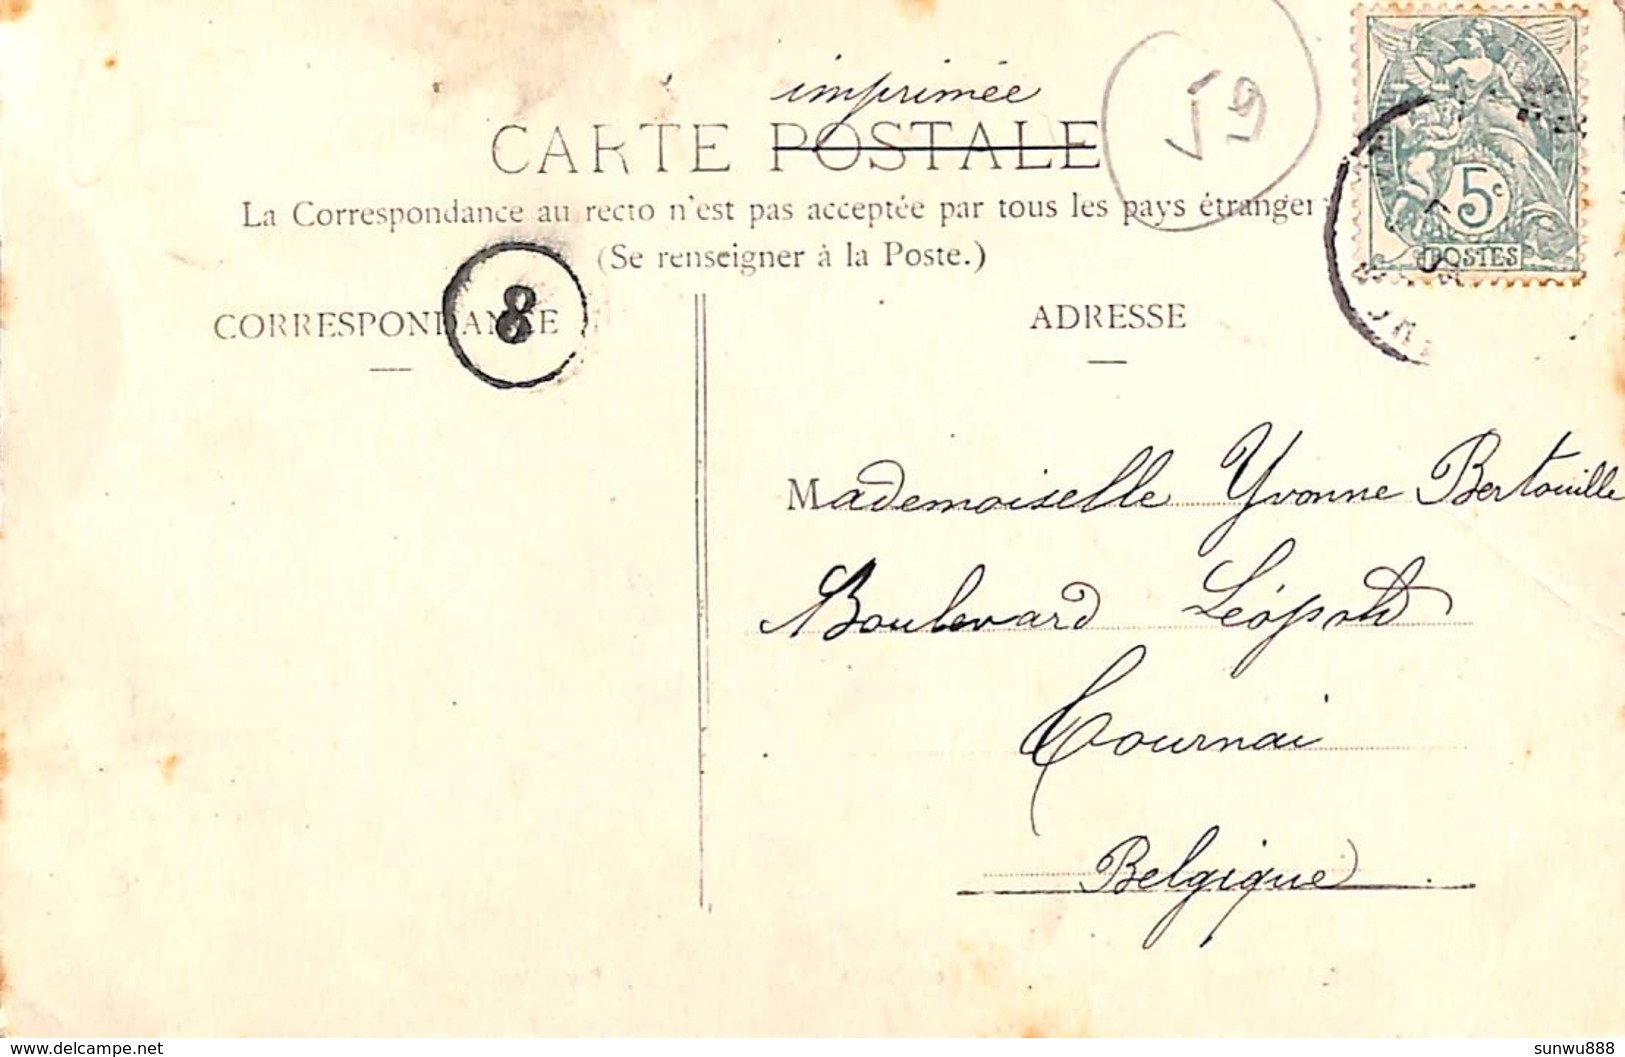 imprimée
CARTE POSTALE
59
La Correspondance au recto n'est pas acceptée par tous les pays étranger
(Se renseigner à la Poste.)
5c
POSTES
CORRESPONDANCE
8
ADRESSE
Mademoiselle Yvonne Bertouille
Boulevard Léopold
Tournai
Belgique
www.delcampe.net
sunwu888